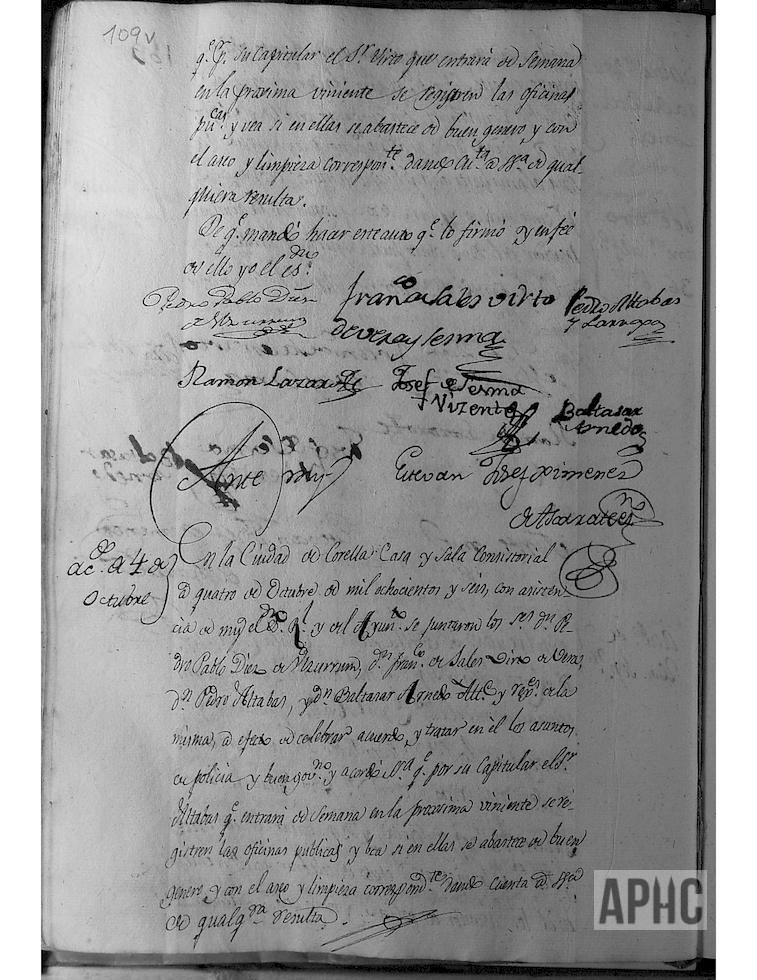 109v
q.e p.r su Capitular el S.r Virto que entrará de Semana
en la proxima viniente se registren las oficinas
pu.cas y vea si en ellas se abastece de buen genero y con
el aseo y limpieza correspon.te dando cu.ta a S.ria de qual-
quiera resulta.
De q.e mandó hacer este auto q.e lo firmó y en feé
de ello yo el es.no
Pedro Pablo Diez
de Ulzurrun
Fran.co Sales Virto
de Vera y Sesma
Pedro Altabas
y Larraga
Ramon Lazaro
Josef de Sesma
y Vizente
Baltasar
Arnedo
Ante mi
Estevan Josef Ximenez
de Azcarate es.no
Ac.do de 4 de
Octubre
En la Ciudad de Corella Casa y Sala Consistorial
a quatro de Octubre de mil ochocientos y seis, con asisten-
cia de mi el es.no R.l y del Ayun.to se juntaron los S.res d.n Pe-
dro Pablo Diez de Ulzurrun, d.n Fran.co de Sales Virto de Vera,
d.n Pedro Altabas, y d.n Baltasar Arnedo Alc.e y reg.res de la
misma, a efecto de celebrar acuerdo, y tratar en él los asuntos
de policia y buen gov.no y acordó S.ria q.e por su Capitular el S.r
Altabas q.e entrará de Semana en la proxsima viniente se re-
gistren las oficinas publicas y bea si en ellas se abastece de buen
genero y con el aseo y limpieza correspond.te dando cuenta a S.ria
de qualq.ra resulta.
APHC